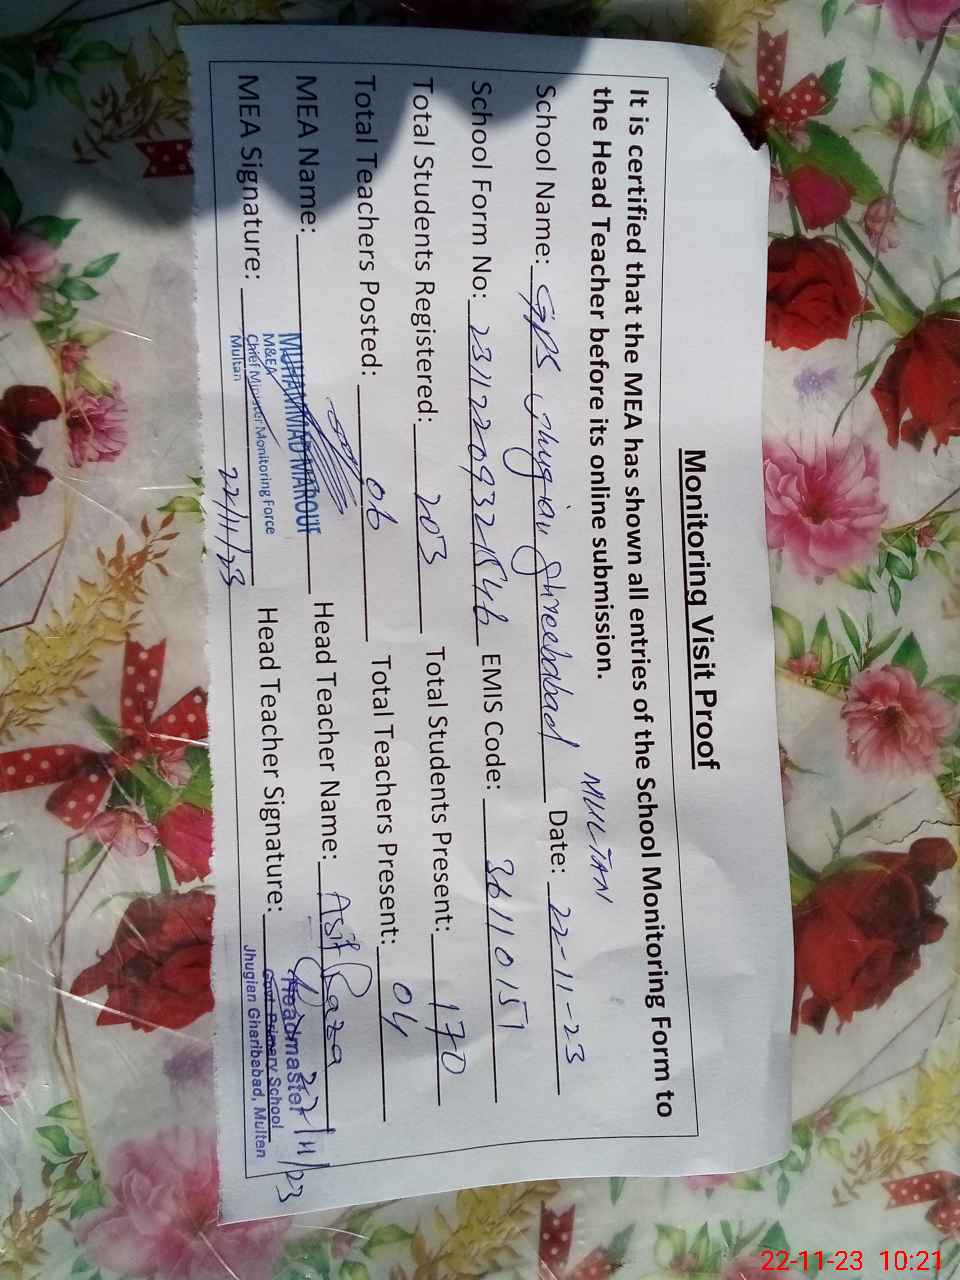 Monitoring Visit Proof
It is certified that the MEA has shown all entries of the School Monitoring Form to
the Head Teacher before its online submission.
MULTAN
School Name: GPS Jhugian Ghreebabad Date: 22-11-23
School Form No: EMIS Code: 36110151
Total Students Registered: 203 Total Students Present: 170
Total Teachers Posted: 06 Total Teachers Present: 04
MEA Name: MUHAMMAD MAROUF Head Teacher Name: Asif Raza
M&EA
Chief Minister Monitoring Force
Multan
MEA Signature: 22/11/23 Head Teacher Signature: 22/11/23
Headmaster
Govt. Primary School
Jhugian Gharibabad, Multan
22-11-23 10:21